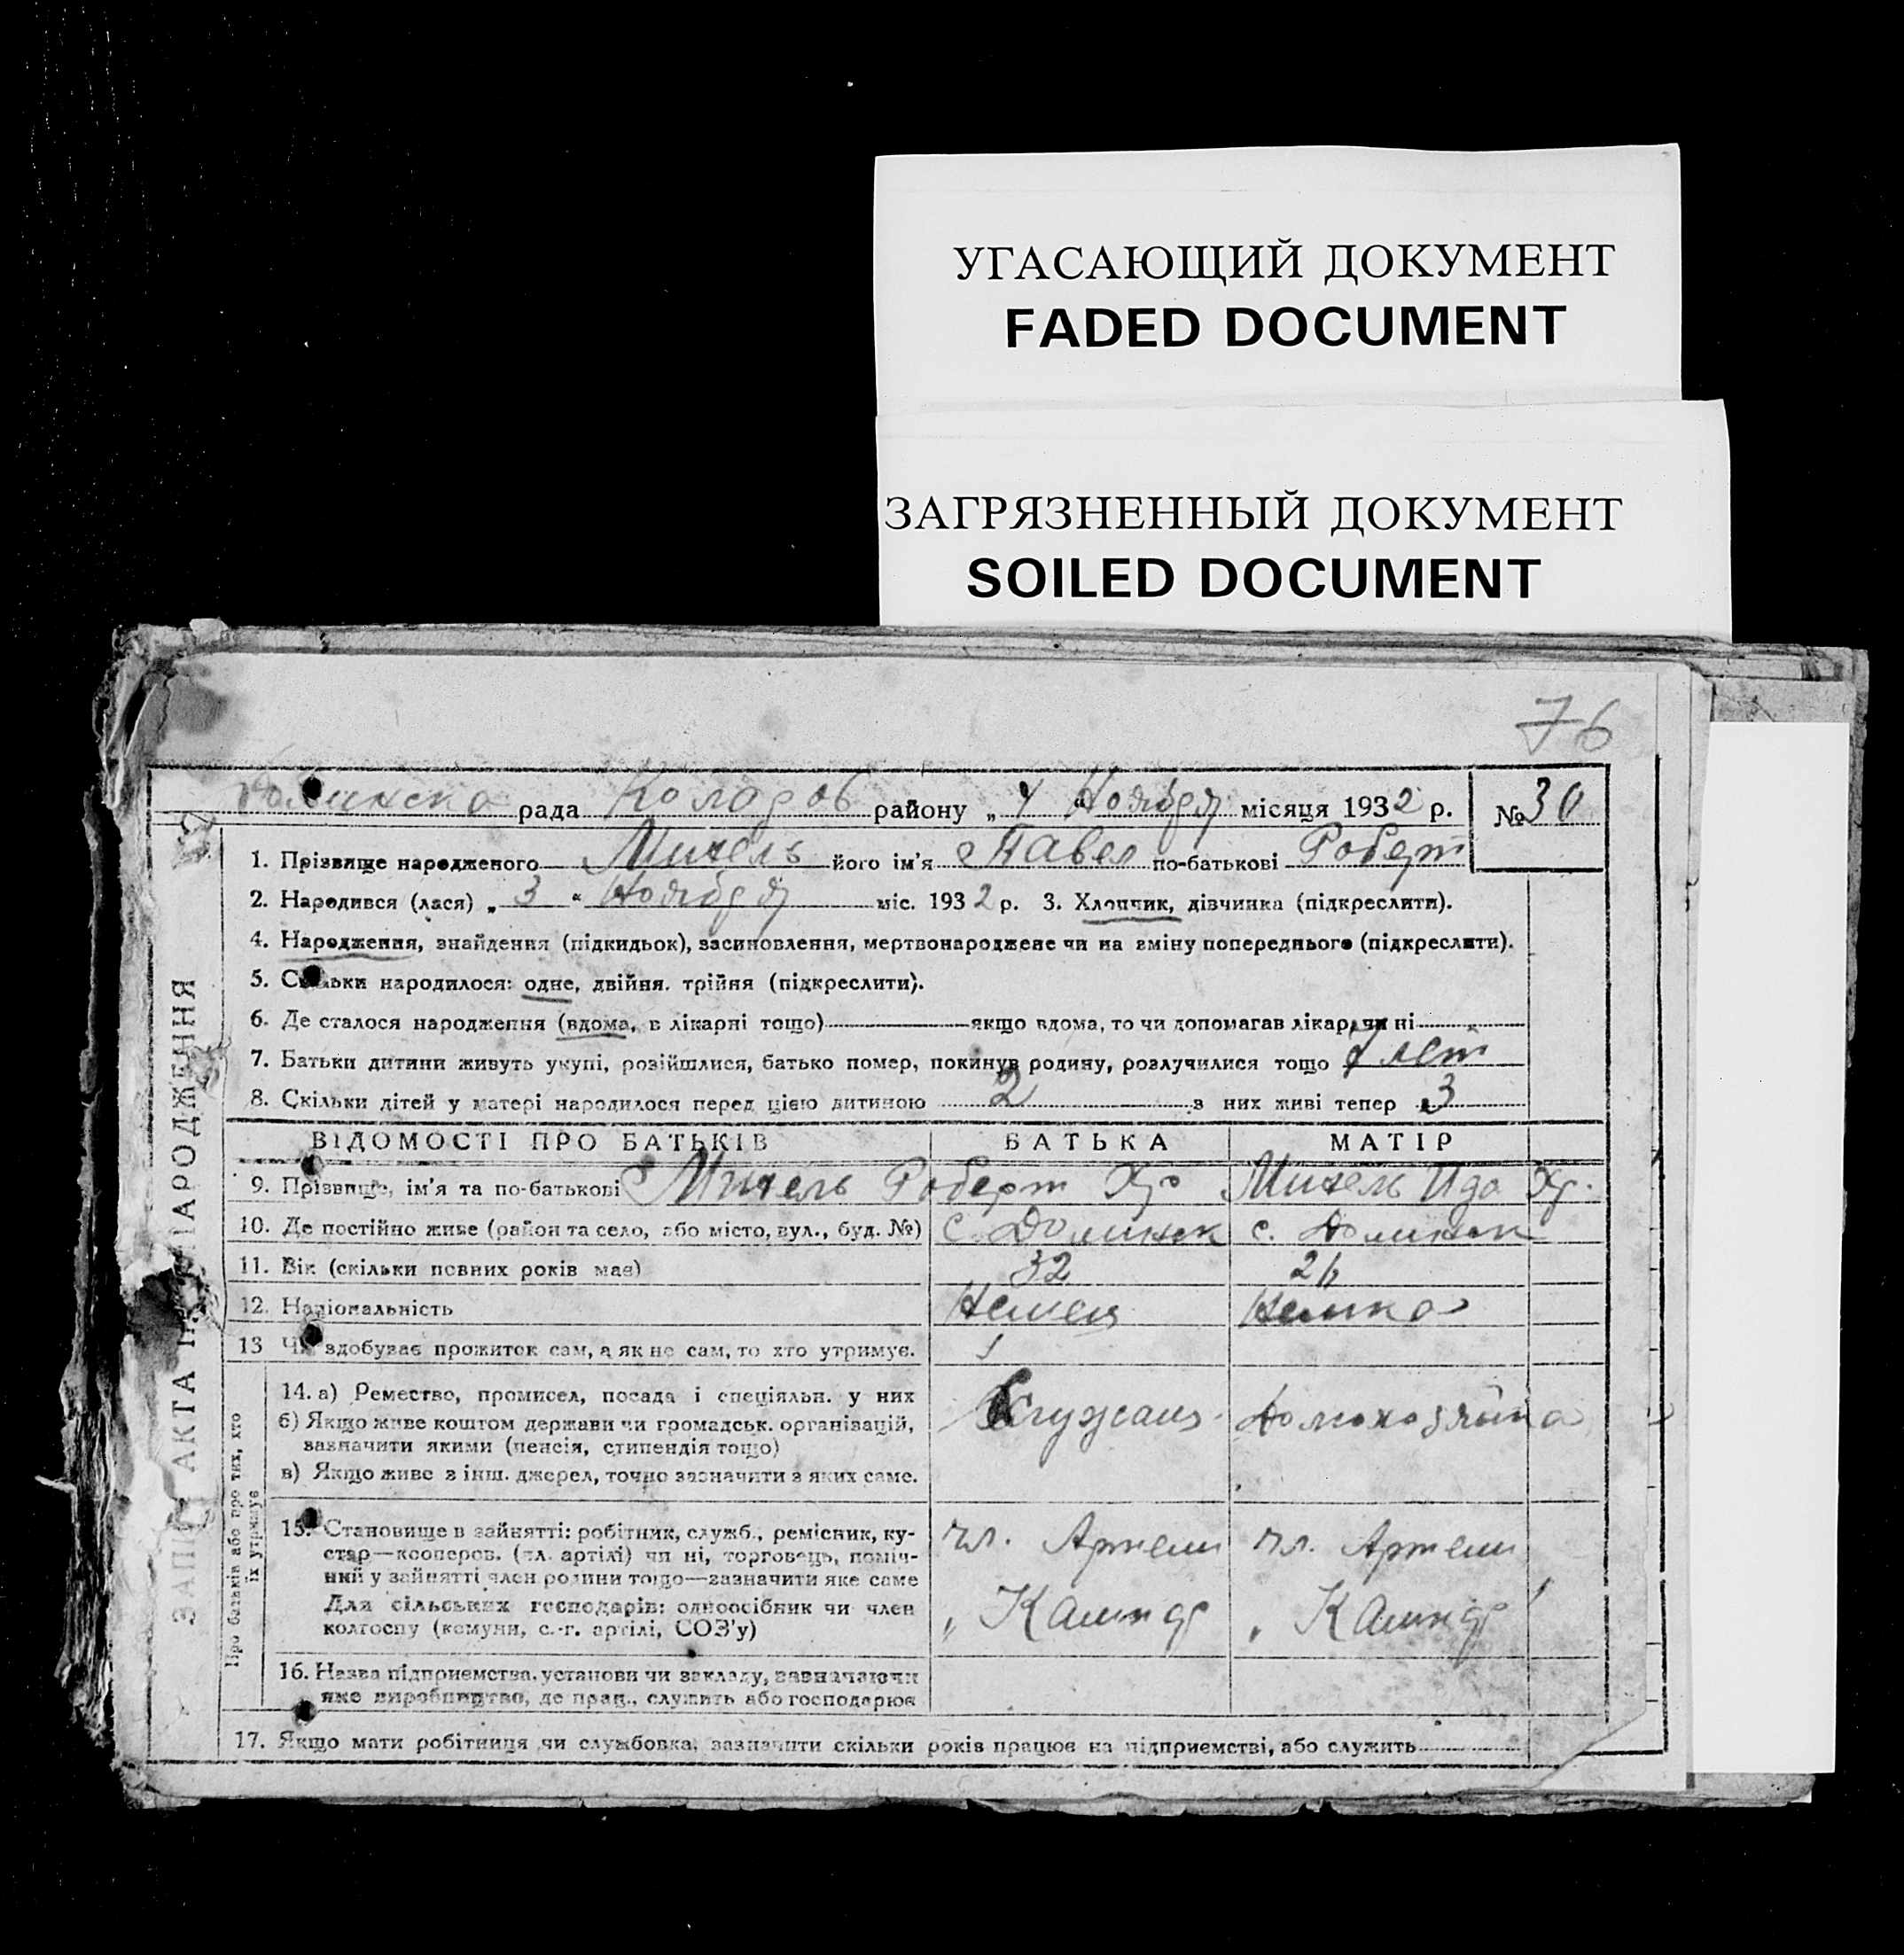 УГАСАЮЩИЙ ДОКУМЕНТ
FADED DOCUMENT
ЗАГРЯЗНЕННЫЙ ДОКУМЕНТ
SOILED DOCUMENT
76
рада району „4“ Ноября місяця 1932 р. № 30
1. Прізвище народженого Михель його ім'я Павел по-батькові Роберт
2. Народився (лася) „3“ Ноября міс. 1932 р. 3. Хлопчик, дівчинка (підкреслити).
4. Народження, знайдення (підкидьок), засиновлення, мертвонароджене чи на зміну попереднього (підкреслити).
5. Скільки народилося: одне, двійня, трійня (підкреслити).
6. Де сталося народження (вдома, в лікарні тощо) якщо вдома, то чи допомагав лікар, чи ні
7. Батьки дитини живуть укупі, розійшлися, батько помер, покинув родину, розлучилися тощо 7 лет
8. Скільки дітей у матері народилося перед цією дитиною 2 з них живі тепер 3
ВІДОМОСТІ ПРО БАТЬКІВ БАТЬКА МАТІР
9. Прізвище, ім'я та по-батькові Михель Роберт Хр Михель Ида Хр.
10. Де постійно живе (район та село, або місто, вул., буд. №) с. Долинск с. Долинск
11. Вік (скільки повних років має) 32 26
12. Національність Немец Немка
13 Чи здобуває прожиток сам, а як не сам, то хто утримує.
14. а) Ремество, промисел, посада і спеціяльн. у них Домохозяйка
б) Якщо живе коштом держави чи громадськ. організацій,
зазначити якими (пенсія, стипендія тощо)
в) Якщо живе з інш. джерел, точно зазначити з яких саме.
15. Становище в зайнятті: робітник, служб., ремісник, ку-
стар—кооперов. (чл. артілі) чи ні, торговець, поміч-
ний у зайнятті член родини тощо—зазначити яке саме
Для сільських господарів: одноосібник чи член
колгоспу (комуни, с.-г. артілі, СОЗ'у)
чл. Артели чл. Артели
16. Назва підприємства, установи чи закладу, зазначаючи
яке виробництво, де прац., служить або господарює
17. Якщо мати робітниця чи службовка, зазначити скільки років працює на підприємстві, або служить
Про батьків або про тих, хто
їх утримує
ЗАПИС АКТА ПРО НАРОДЖЕННЯ